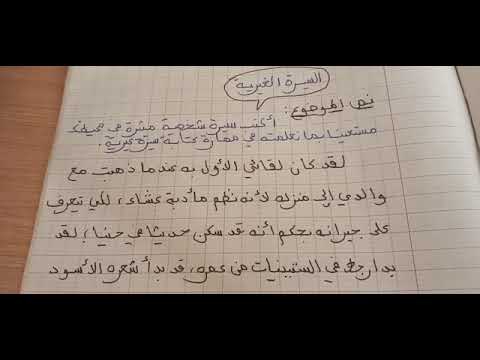 السيرة الغيرية
نص الموضوع: أكتب سيرة شخصية مؤثرة في محيطك
مستعينا بما تعلمته في مهارة كتابة سيرة غيرية.
لقد كان لقائي الأول به عندما ذهبت مع
والدي إلى منزله لأنه نظم مأدبة عشاء، لكي يتعرف
على جيرانه بحكم أنه قد سكن حديثا في حينا، لقد
بدا رجلا في الستينيات من عمره، قد بدأ شعره الأسود